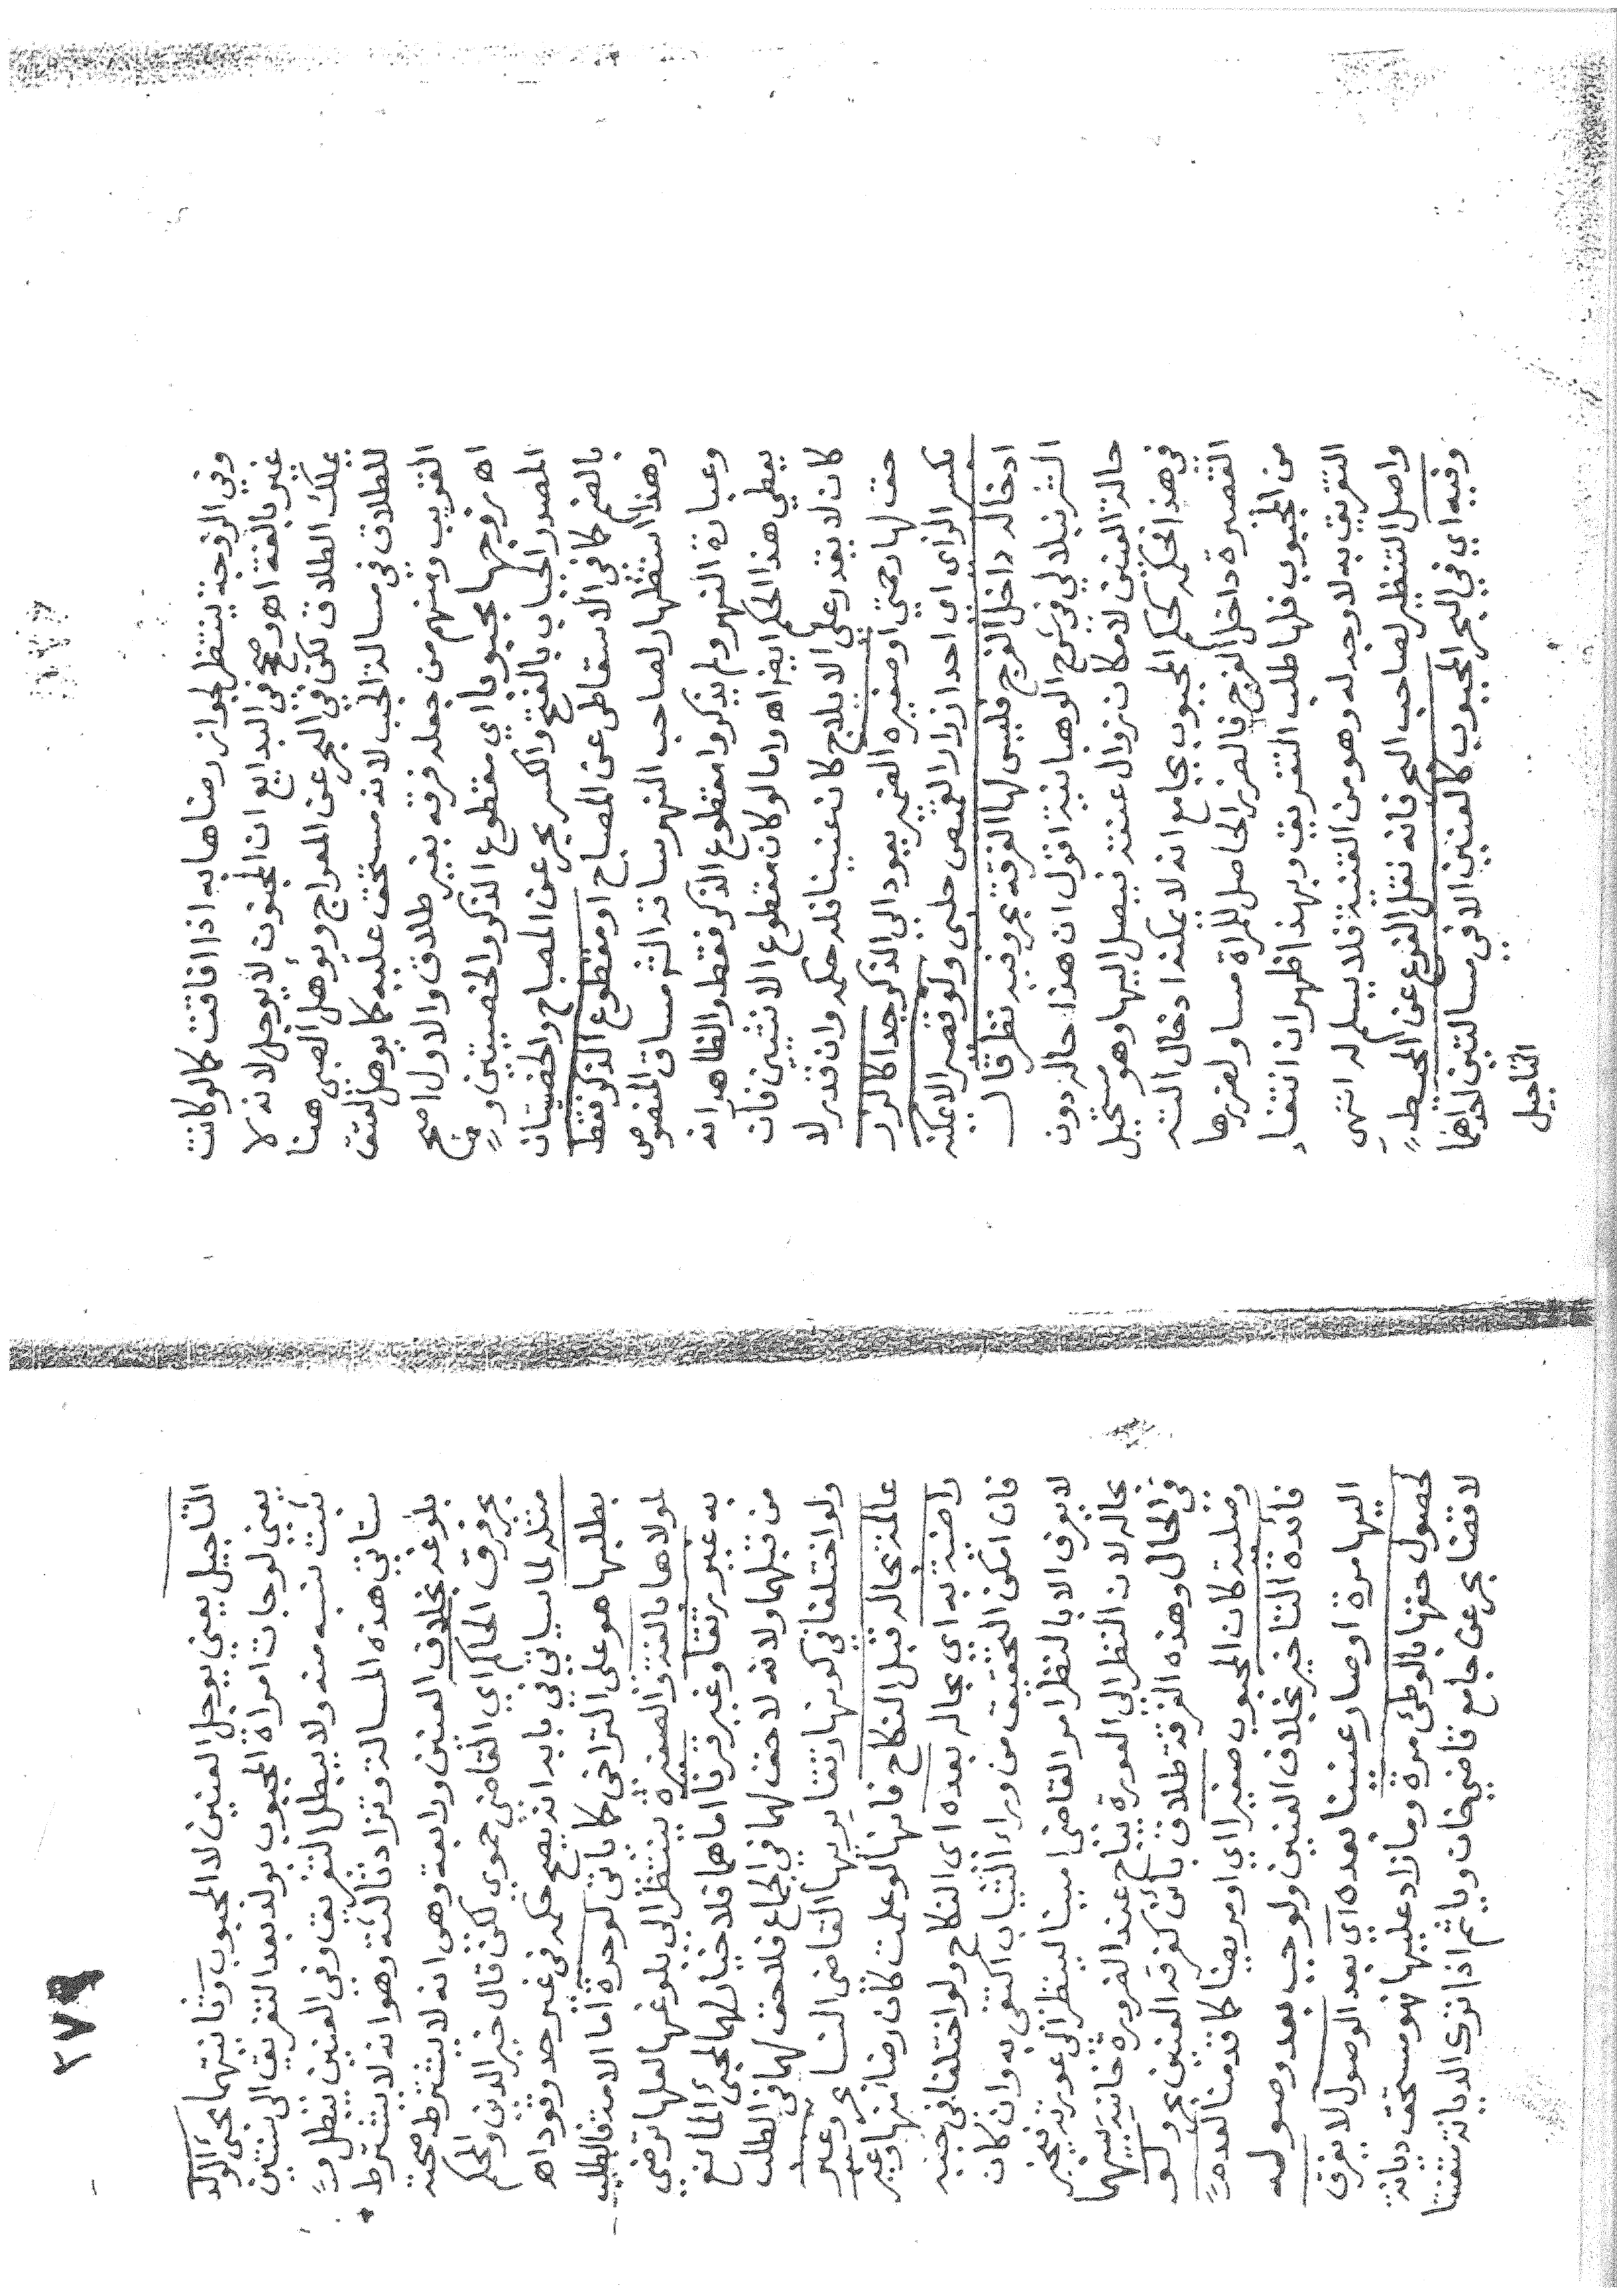 وفي الزوجة ينتظر لجواز رضاها به اذا افاقت كما لو كانت
غير بالغة اه وصح في البدايع ان المجنون لا يوجل لانه لا
يملك الطلاق لكن في البحر عن المعراج ويوهل الصبي هنا
للطلاق في مسالة الجب لانه مستحق عليه كما يوهل لعتق
القريب ومنهم من جعله فرقة بغير طلاق والاول اصح
اه زوجها مجبوبا اي مقطوع الذكر والخصيتين
المصدر الجباب بالفتح والكسر بحر عن المصباح والخصيتان
بالضم كما في الاسقاطي عن المصباح او مقطوع الذكر فقط
وهذا استظهار لصاحب النهر ساقه الش مساق المنصوص
وعبارة النهر ولم يذكروا مقطوع الذكر فقط والظاهر انه
يعطي هذا الحكم ايضا اه واما لو كان مقطوع الانثيين فان
كان لا يقدر على الايلاج كان عنينا فله حكمه وان قدر لا
حق لها رحمتي او صغيره الضمير يعود الى الذكر جدا كالزر
بكسر الزاي احد ازرار القميص حلبي ولو قصر الا يمكنه
ادخاله داخل الفرج فليس لها الفرقة بحر وفيه نظر قال
الشرنبلالي في شرح الوهبانية اقول ان هذا حاله دون
حالة العنين لامكان زوال عنته فيصل اليها وهو مستحيل
في هذا فحكمه حكم المجبوب بجامع انه لا يمكنه ادخال الته
القصيرة داخل الفرج فالضرر الحاصل للمراة مساو لضررها
من المجبوب فلها طلب التفريق وبهذا ظهر ان انتفاء
التفريق به لا وجه له وهو من القنية فلا يسلم له انتهى
واصل التنظير لصاحب البحر فانه نقل الفرع عن المحيط
وفيه اي في البحر المجبوب كالعنين الا في مسالتين احداهما
التاجيل
٢٧٩
التاجيل يعني يوجل العنين لا المجبوب وثانيتهما مجئ الولد
يعني لو جات امراة المجبوب بولد بعد التفريق الى سنتين
ثبت نسبه منه ولا يبطل التفريق وفي العنين يبطل
ستاتي هذه المسالة وتزاد ثالثة وهو انه لا يشترط
بلوغه بخلاف العنين ورابعة وهي انه لا يشترط صحته
بحر فرق الحاكم اي القاضي حموي لكن قال خير الدين والحكم
مثله لما سياتي في بابه انه يصح حكمه في غير حد وقود اه
بطلبها هو على التراخي كما ياتي لو حرة اما الامة فالطلب
لمولاها بالغة والصغيرة ينتظر الى بلوغها لعلها ترضى
به غير رتقا وغير قرنا اما هما فلا خيار لهما لمجئ المانع
من قبلهما ولانه لا حق لهما في الجماع فلا حق لهما في الطلب
ولو اختلفا في كونها رتقا يريها القاضي النسا بحر وغير
عالمة بحاله قبل النكاح فانها لو علمت كان رضا منها وغير
راضية به اي بحاله بعده اي النكاح ولو اختلفا في جبه
فان امكن التحقيق من وراء الثياب اكتفى به وان كان
لا يعرف الا بالنظر امر القاضي امينا لينظر الى عورته فيخبر
بحاله لان النظر الى العورة يباح عند الضرورة خانية بينهما
في الحال وهذه الفرقة طلاق بائن كفرقة العنين بحر ولو
وصلية كان المجبوب صغيرا اي او مريضا كما قدمنا لعدم
فائدة التاخير بخلاف العنين ولو جب بعد وصوله
اليها مرة او صار عنينا بعده اي بعد الوصول لا يفرق
لحصول حقها بالوطئ مرة وما زاد عليها فهو مستحق ديانة
لا قضا بحر عن جامع قاضي خان وياثم اذا ترك الديانة متعنتا